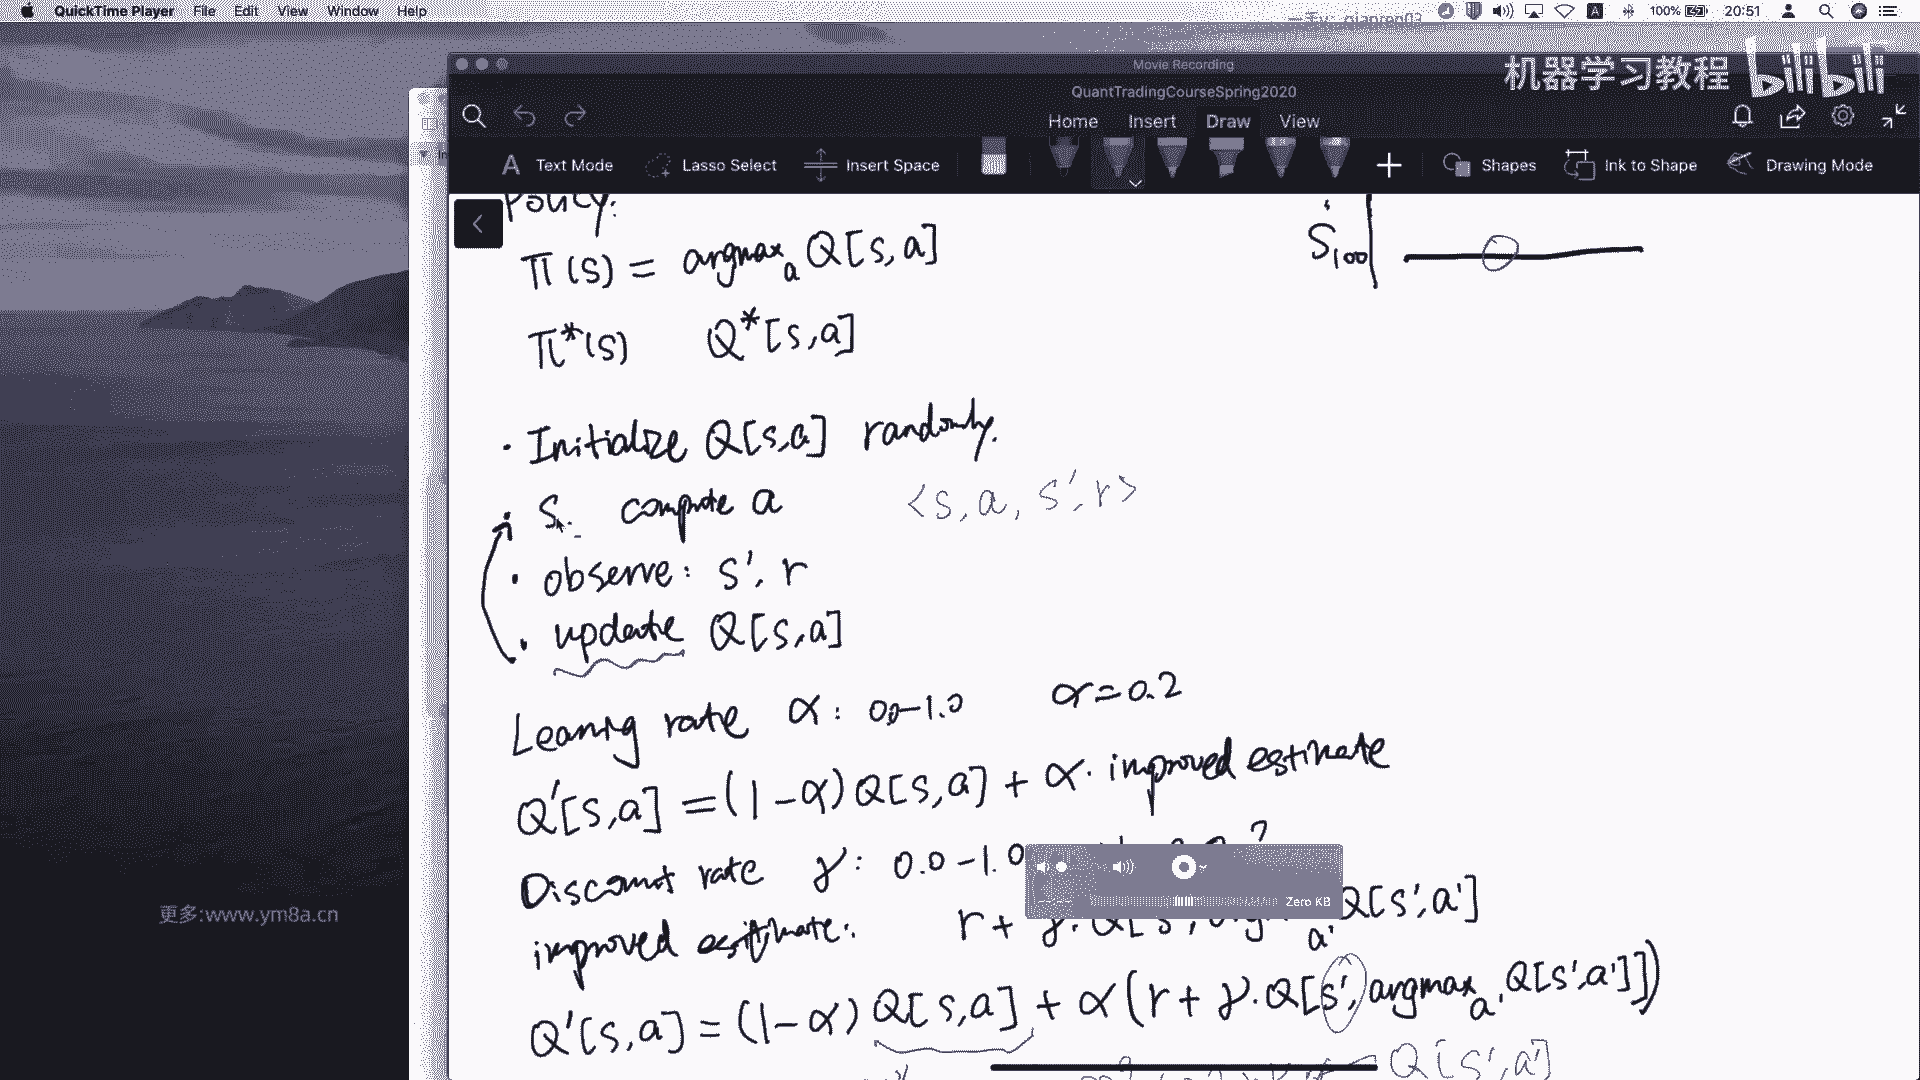 QuickTime Player File Edit View Window Help 100% 20:51
Movie Recording
机器学习教程 bilibili
QuantTradingCourseSpring2020
Home Insert Draw View
Text Mode Lasso Select Insert Space Shapes Ink to Shape Drawing Mode
Policy:
π(s) = argmax_a Q[s,a]
S_100
π*(s) Q*[s,a]
· Initialize Q[s,a] randomly.
· S. compute a <s, a, s', r>
· observe: s', r
· update Q[s,a]
Learning rate α: 0.0-1.0 α=0.2
Q'[s,a] = (1-α) Q[s,a] + α· improved estimate
Discount rate γ: 0.0-1.0
Zero KB
更多:www.ym8a.cn
improved estimate: r + γ·Q[s', a' Q[s',a']
Q'[s,a] = (1-α) Q[s,a] + α(r + γ·Q[s', argmax_a' Q[s',a']])
Q[s',a']